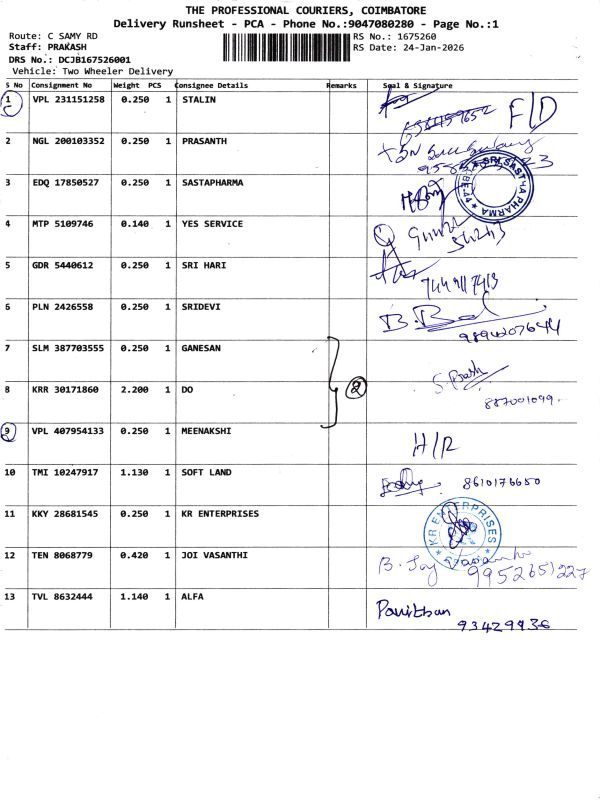 THE PROFESSIONAL COURIERS, COIMBATORE
Delivery Runsheet - PCA - Phone No.:9047080280 - Page No.:1
Route: C SAMY RD RS No.: 1675260
Staff: PRAKASH RS Date: 24-Jan-2026
DRS No.: DCJB167526001
Vehicle: Two Wheeler Delivery
S No Consignment No Weight PCS Consignee Details Remarks Seal & Signature
1 VPL 231151258 0.250 1 STALIN F/D
2 NGL 200103352 0.250 1 PRASANTH
3 EDQ 17850527 0.250 1 SASTAPHARMA SRI SASTHA PHARMA
4 MTP 5109746 0.140 1 YES SERVICE
5 GDR 5440612 0.250 1 SRI HARI
6 PLN 2426558 0.250 1 SRIDEVI
7 SLM 387703555 0.250 1 GANESAN
2
8 KRR 30171860 2.200 1 DO
9 VPL 407954133 0.250 1 MEENAKSHI H/R
10 TMI 10247917 1.130 1 SOFT LAND 8610176650
11 KKY 28681545 0.250 1 KR ENTERPRISES KR ENTERPRISES
12 TEN 8068779 0.420 1 JOI VASANTHI
9952651227
13 TVL 8632444 1.140 1 ALFA